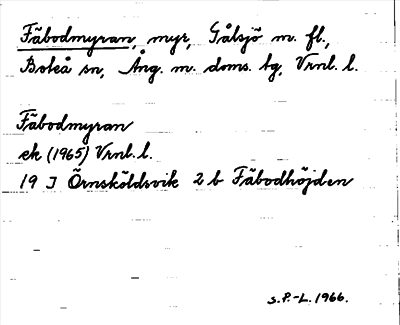 Fäbodmyran, myr, Gålsjö m. fl.,
Boteå sn, Ång. m. doms. tg, Vrnl. l.
Fäbodmyran
ek (1965) Vrnl. l.
19 J Örnsköldsvik 2 b Fäbodhöjden
S.P.-L. 1966.